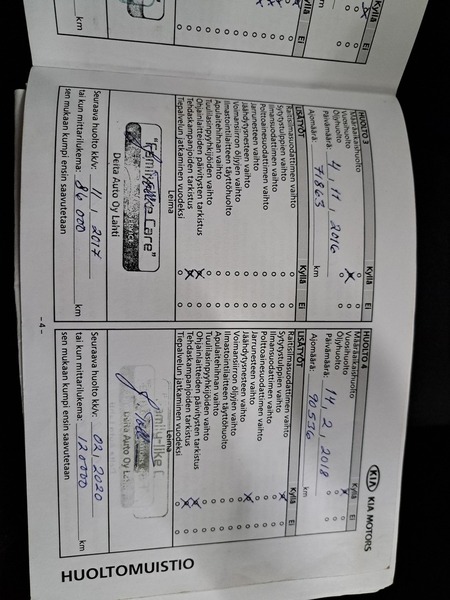 Kyllä Ei
km
HUOLTO 3
Kyllä Ei
Määräaikaishuolto
Vuosihuolto
Öljyhuolto
Päivämäärä: 4, 11, 2016
Ajomäärä: 71863 km
LISÄTYÖT
Kyllä Ei
Raitisilmasuodattimen vaihto
Sytytystulppien vaihto
Ilmansuodattimen vaihto
Polttoainesuodattimen vaihto
Jarrunesteen vaihto
Jäähdytysnesteen vaihto
Voimansiirron öljyjen vaihto
Ilmastointilaitteen täyttöhuolto
Apulaitehihnan vaihto
Tuulilasinpyyhkijöiden vaihto
Ohjainlaitteiden päivitysten tarkistus
Tehdaskampanjoiden tarkistus
Tiepalvelun jatkaminen vuodeksi
Leima
"Family-like Care"
Delta Auto Oy Lahti
Seuraava huolto kk/v: 11, 2017
tai kun mittarilukema: 86 000 km
sen mukaan kumpi ensin saavutetaan
- 4 -
KIA KIA MOTORS
HUOLTO 4
Kyllä Ei
Määräaikaishuolto
Vuosihuolto
Öljyhuolto
Päivämäärä: 14, 2, 2018
Ajomäärä: 90536 km
LISÄTYÖT
Kyllä Ei
Raitisilmasuodattimen vaihto
Sytytystulppien vaihto
Ilmansuodattimen vaihto
Polttoainesuodattimen vaihto
Jarrunesteen vaihto
Jäähdytysnesteen vaihto
Voimansiirron öljyjen vaihto
Ilmastointilaitteen täyttöhuolto
Apulaitehihnan vaihto
Tuulilasinpyyhkijöiden vaihto
Ohjainlaitteiden päivitysten tarkistus
Tehdaskampanjoiden tarkistus
Tiepalvelun jatkaminen vuodeksi
Leima
Delta Auto Oy
Seuraava huolto kk/v: 02, 2020
tai kun mittarilukema: 120000 km
sen mukaan kumpi ensin saavutetaan
HUOLTOMUISTIO